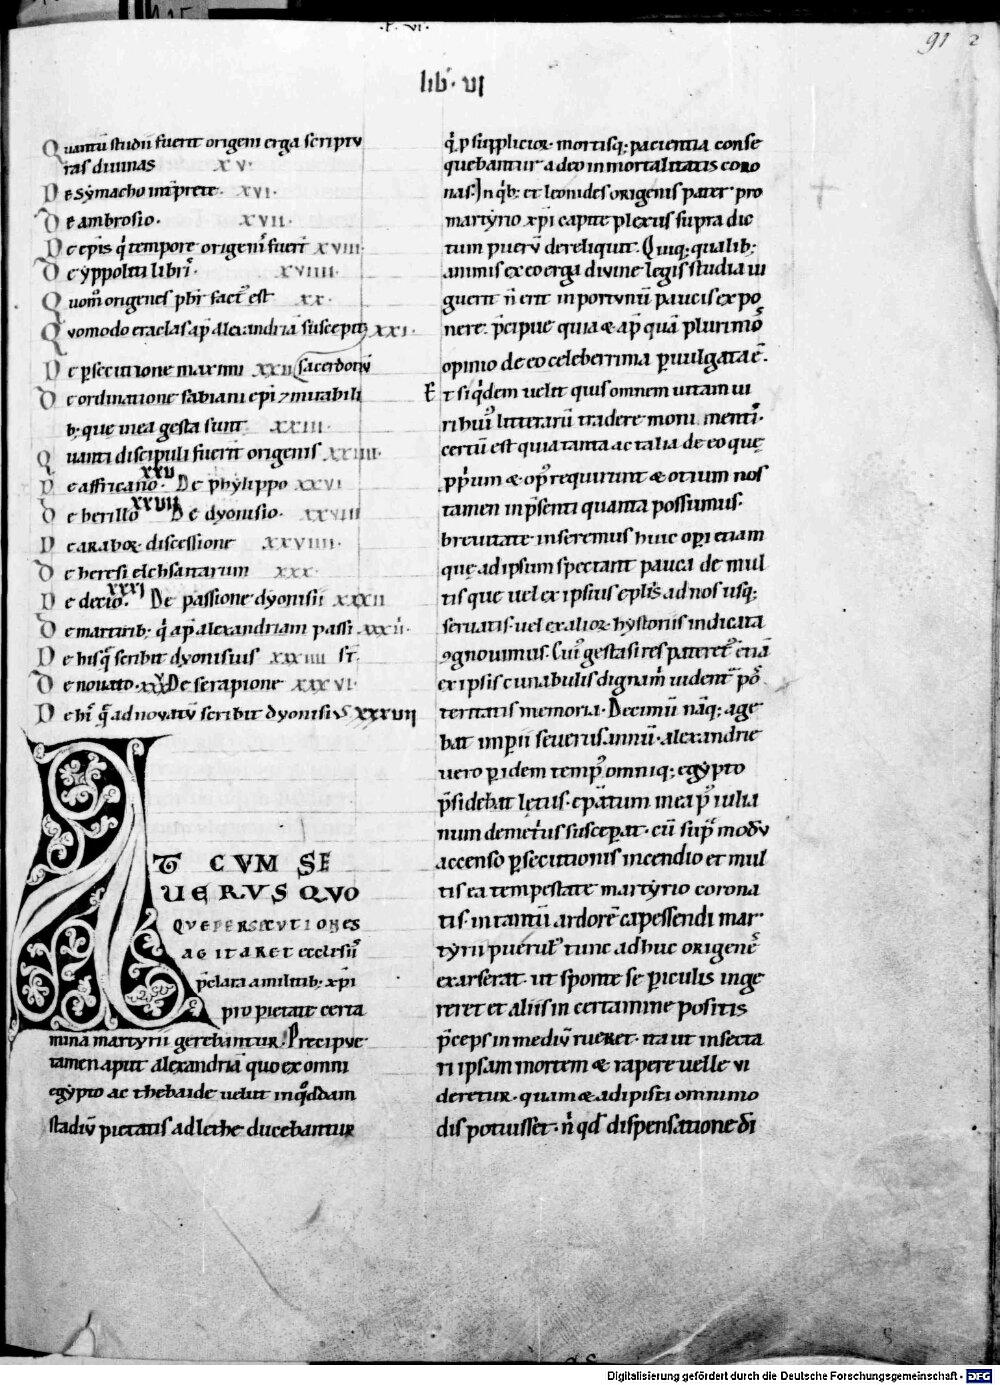 ·P· VI·
91 2
lib̅· VI
Quantū studii fuerit origeni erga scriptu
ras diuinas XV·
De symacho int̅prete· XVI·
De ambrosio· XVII·
De ep̅is q̇ tempore origenis fuer̅t XVIII·
De yppoliti libris· XVIIII·
Quom̅ origenes pb̅r fact᷒ est XX·
Quomodo eraclas ap̅ alexandriā suscepit XXI·
De p̅secutione maximi XXII sacerdotiū
De ordinatione fabiani ep̅i ⁊ mirabili
b; que in ea gesta sunt XXIII·
Quanti discipuli fuerīt origenis XXIIII·
De affricano· XXV De phylippo XXVI
De berillo XXVII De dyonisio· XXVIII
De araboꝝ discessione XXVIIII·
De heresi elchsaitarum XXX·
De decio· XXXI De passione dyonisii XXXII
De martirib; q̇ ap̅ alexandriam passi XXXIII· st̅·
De his q̅ scribit dyonisius XXXIIII
De nouato· XXXV De serapione XXXVI·
De his q̅ ad nouatū scribit dyonisius XXXVII
AT CVM SE
UERVS QVO
QVE PERSECVTIONES
AGITARET ecclesiis
p̅clara a militib; xp̅i
pro pietate certa
mina martyrii gerebantur· Precipue
tamen aput alexandriā quo ex omni
egypto ac thebaide uelut in q̇ddam
stadiū pietatis adlethe ducebantur
q̇ p suppliciorꝝ mortisq; pacientia conse
quebantur a deo inmortalitatis coro
nas· In q̇b; et leonides origenis pater pro
martyrio xp̅i capite plexus supra dic
tum puerū dereliquit· Quiq; qualib;
animis ex eo erga diuine legis studia ui
guerit n̅ erit inportunū paucis expo
nere· p̅cipue quia & ap̅ quā plurimos
opinio de eo celeberrima p̱uulgata ē·
Et siq̇dem uelit quis omnem uitam ui
ri hui᷒ litterarū tradere monimentis·
certū est quia tanta ac talia de eo quę
pp̅ium & op᷒ requirunt & otium nos
tamen inp̅senti quanta possumus·
breuitate inseremus huic operi etiam
quę ad ipsum spectant pauca de mul
tis que uel ex ipsius epl̅is ad nos usq;
seruatis· uel ex alioꝝ hystoriis indicata
ꝯgnouimus· Cui᷒ gesta si res pateret᷒ etiā
ex ipsis cunabulis digna m̅ uident᷒ pos
teritatis memoria· Decimū nāq; age
bat imperii seuerus annū· alexandrie
uero p̱ idem temp᷒ omniq; egypto
p̅sidebat letus· ep̅atum in ea p᷒ iulia
num demetrius susceperat· cū sup̅ modū
accenso p̱secutionis incendio et mul
tis ea tempestate martyrio corona
tis· in tantū ardorē capessendi mar
tyrii puerul᷒ tunc adhuc origenes
exarserat· ut sponte se p̱iculis inge
reret et aliis in certamine positis
p̅ceps in mediū rueret· ita ut insecta
ri ipsam mortem & rapere uelle vi
deretur· quam & adipisci omnimo
dis potuisset· n̅ qd̅ dispensatione di̅
Digitalisierung gefördert durch die Deutsche Forschungsgemeinschaft - DFG